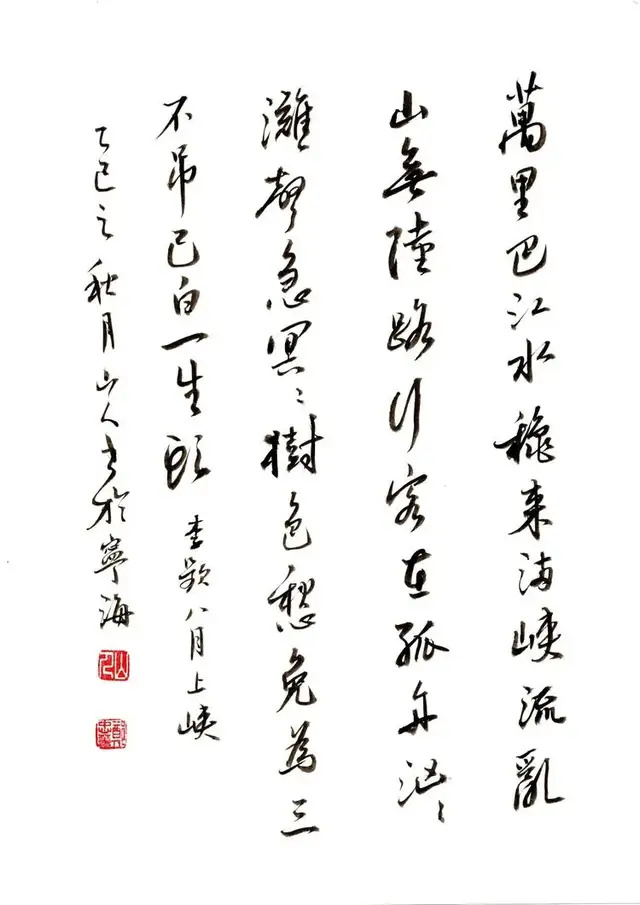 萬里巴江水穐来满峽流亂
山無陸路行客在孤舟汹〻
灘聲急冥〻樹色愁免為三
不吊已白一生頭 李频八月上峽
乙巳之秋月山人书於寧海